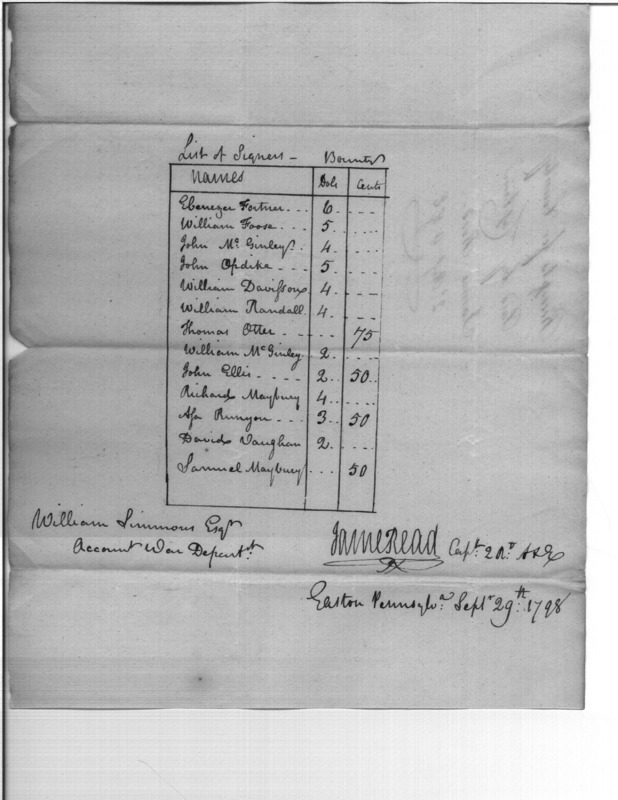 List of Signers – Bounty
Names Dols Cents
Ebenezer Fortner... 6. ....
William Foose... 5. ....
John McGinley. 4. ....
John Opdike... 5. ....
William Davisson 4. ....
William Randall. 4. ....
Thomas Otter.... 75
William McGinley. 2. ....
John Ellis.... 2.. 50..
Richard Maybury 4. ....
Asa Runyon... 3.. 50
David Vaughan 2. ....
Samuel Maybury ... 50
William Simmons Esqr
Account War Depart.t
James Read Capt. 2
Easton Pennsylva. Septr 29th. 1798